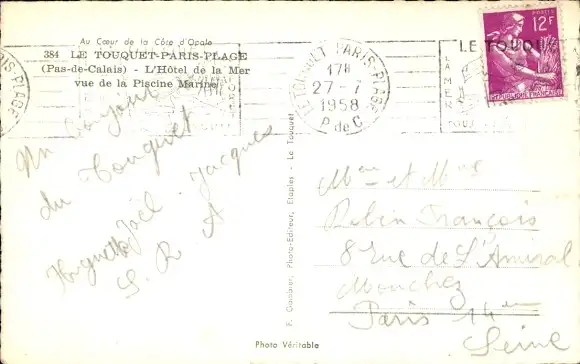 Au Cœur de la Côte d'Opale
384 LE TOUQUET-PARIS-PLAGE
(Pas-de-Calais) - L'Hôtel de la Mer
vue de la Piscine Marine
Un bonjour
du Touquet
Huguette Joël. Jacques
S. R. A
F. Guiobrar, Photo-Editeur, Etaples - Le Touquet
Photo Véritable
LE TOUQUET PARIS-PLAGE
17H
27-7
1958
P. de C.
IS-PLAGE
LE TOUQU
LA MER
POSTES
12F
REPUBLIQUE FRANÇAISE
Mr et Mme
Robin François
8 rue de L'Amiral
Mouchez
Paris 14 eme
Seine